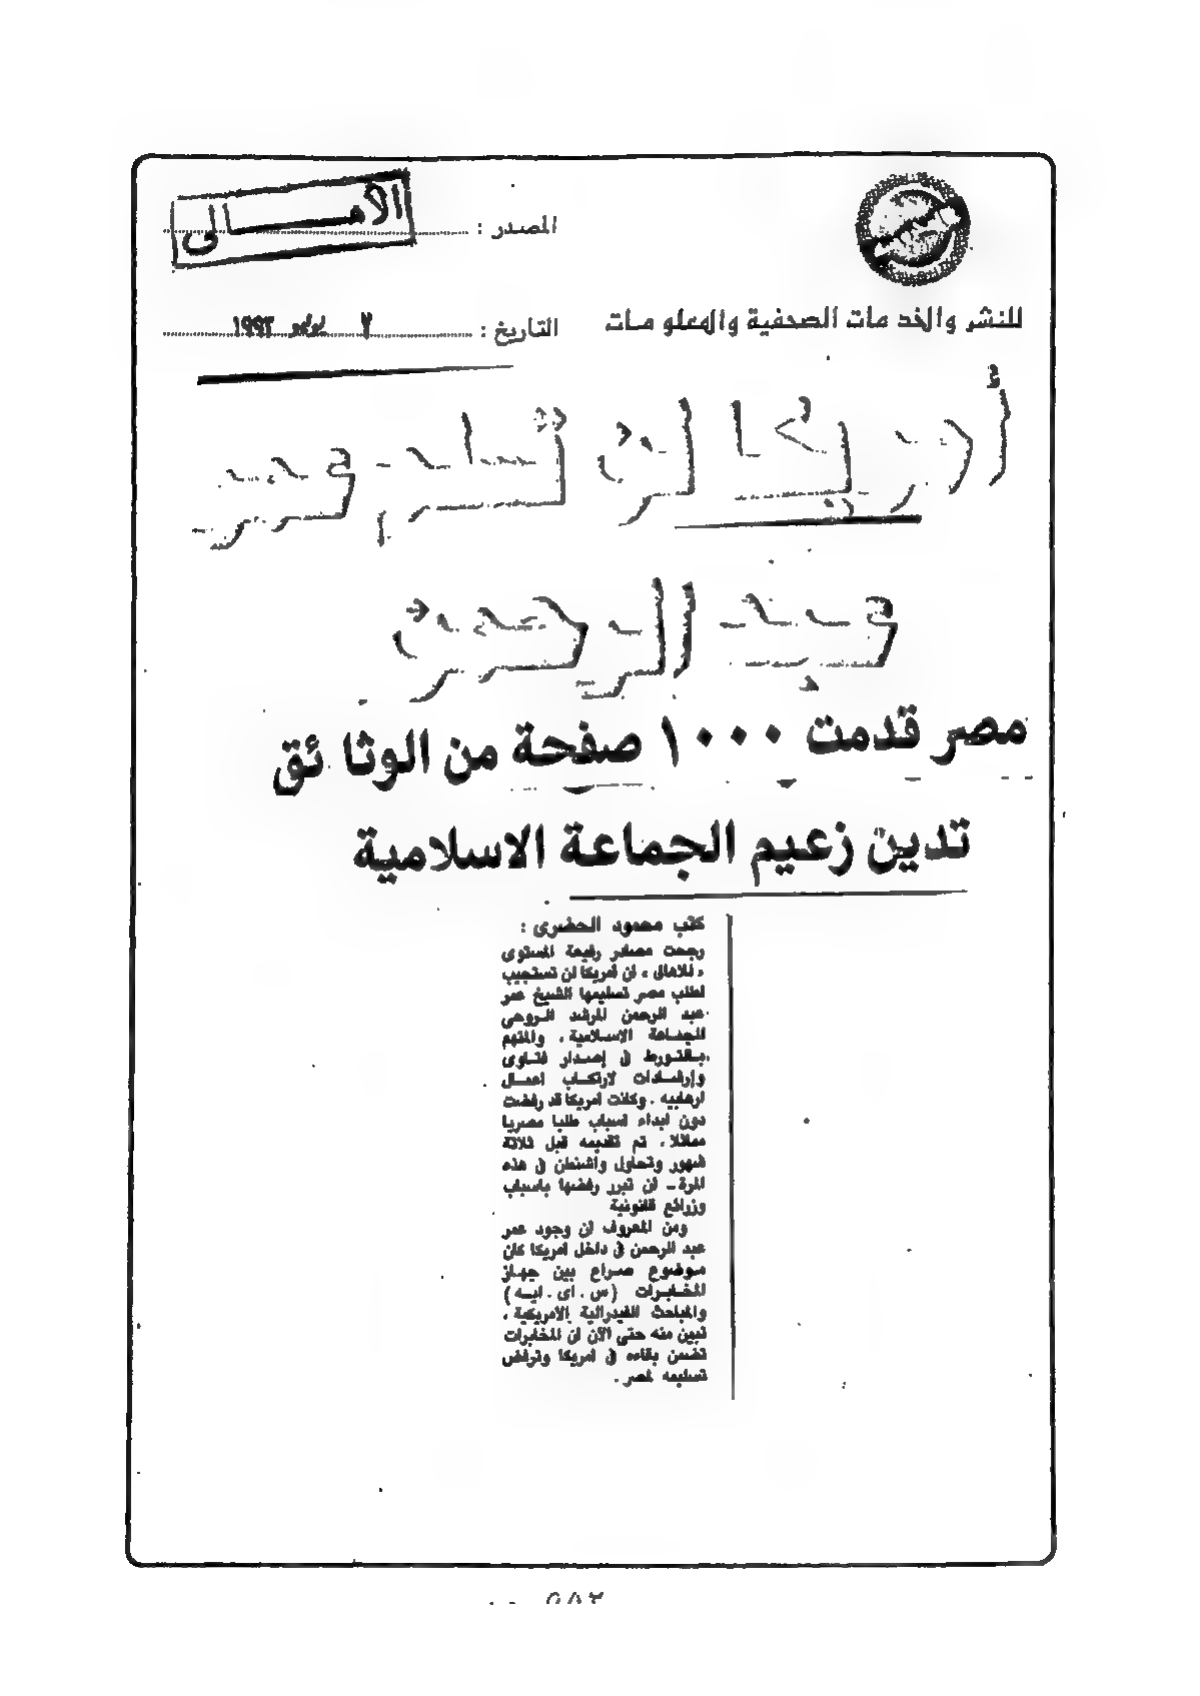 المصدر : الأهالى
للنشر والخدمات الصحفية والمعلومات
التاريخ : ٧ يوليو ١٩٩٣
أمريكا لن تسلم عمر
عبد الرحمن
مصر قدمت ١٠٠٠ صفحة من الوثائق
تدين زعيم الجماعة الاسلامية
كتب محمود الحضرى :
رجحت مصادر رفيعة المستوى
« للاهالى » ان أمريكا لن تستجيب
لطلب مصر تسليمها الشيخ عمر
عبد الرحمن المرشد الروحى
للجماعة الاسلامية ، والمتهم
بالتورط فى إصدار فتاوى
وإرشادات لارتكاب اعمال
ارهابيه . وكانت امريكا قد رفضت
دون ابداء اسباب طلبا مصريا
مماثلا ، تم تقديمه قبل ثلاثة
شهور وتحاول واشنطن فى هذه
المرة ـ ان تبرر رفضها باسباب
وزرائع قانونية
ومن المعروف ان وجود عمر
عبد الرحمن فى داخل امريكا كان
موضوع صراع بين جهاز
المخابرات ( س . اى . ايه )
والمباحث الفيدرالية الأمريكية ،
تبين منه حتى الآن ان المخابرات
تضمن بقاءه فى امريكا وترفض
تسليمه لمصر .